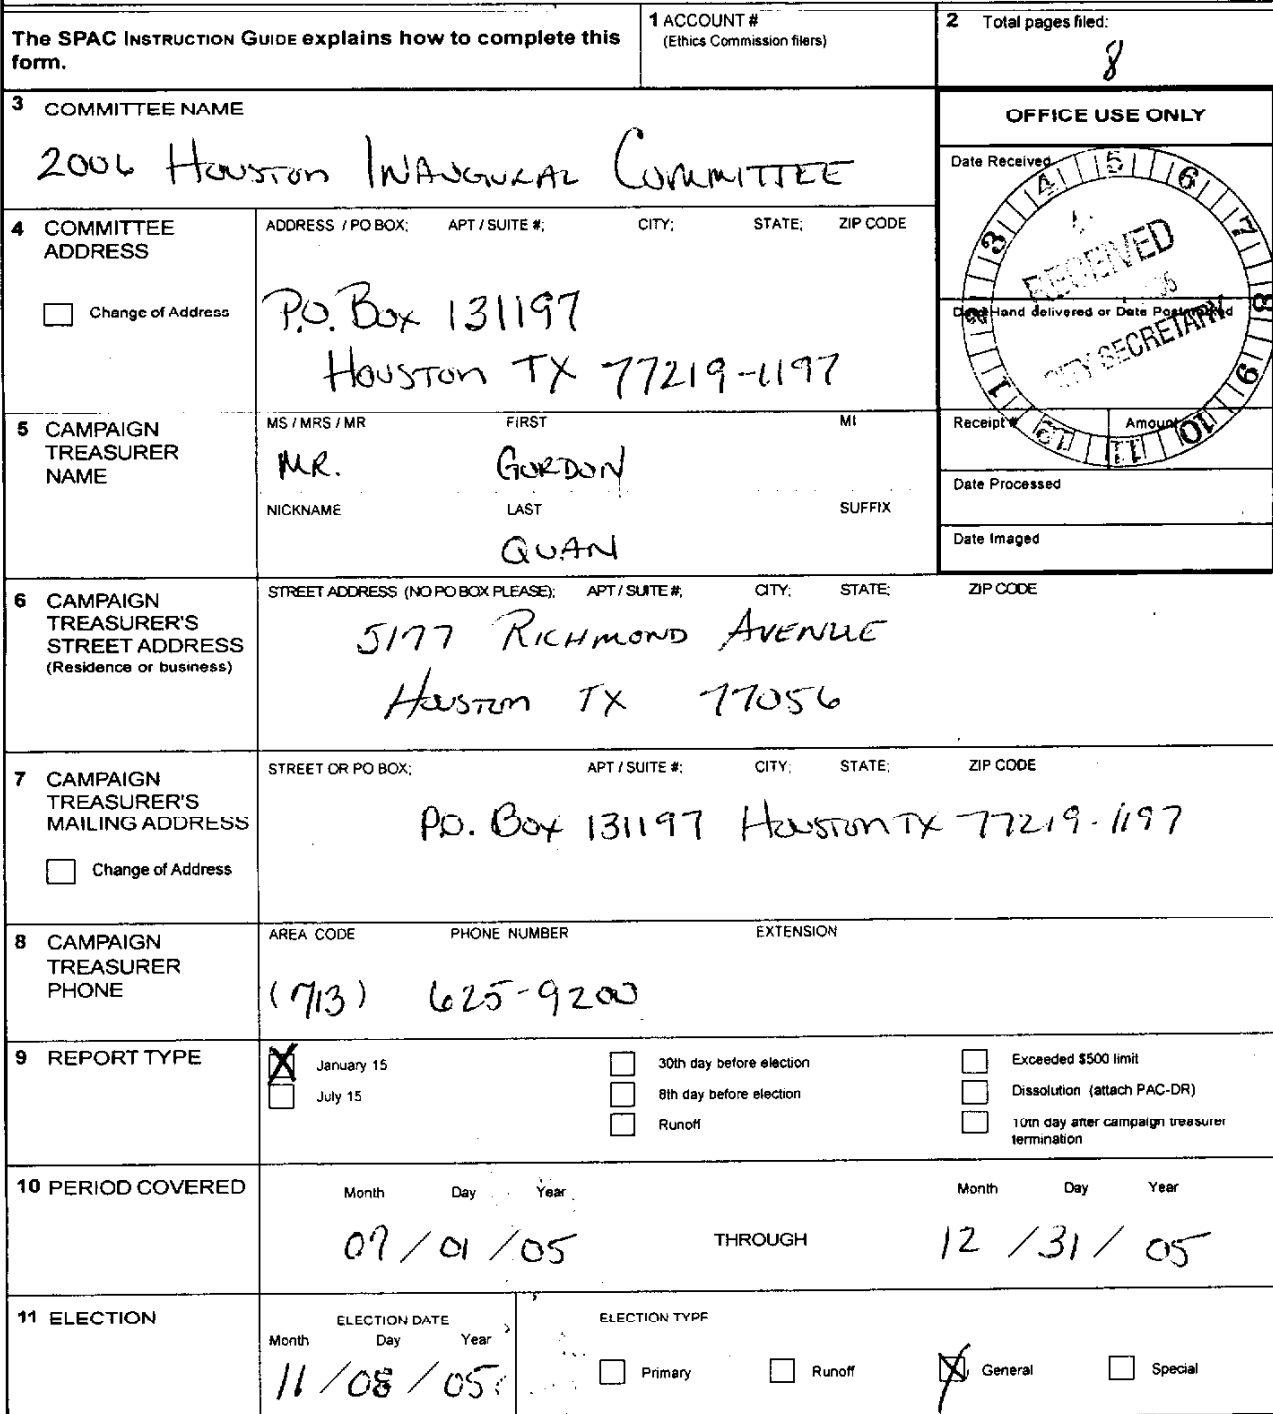 The SPAC INSTRUCTION GUIDE explains how to complete this form.
1 ACCOUNT #
(Ethics Commission filers)
2 Total pages filed:
8
3 COMMITTEE NAME
2006 HOUSTON INAUGURAL COMMITTEE
OFFICE USE ONLY
Date Received
RECEIVED
CITY SECRETARY
1 2 3 4 5 6 7 8 9 10 11 12
Date Hand delivered or Date Postmarked
Receipt #
Amount
Date Processed
Date Imaged
4 COMMITTEE ADDRESS
Change of Address
ADDRESS / PO BOX; APT / SUITE #; CITY; STATE; ZIP CODE
P.O. Box 131197
HOUSTON TX 77219-1197
5 CAMPAIGN TREASURER NAME
MS / MRS / MR FIRST MI
MR. GORDON
NICKNAME LAST SUFFIX
QUAN
6 CAMPAIGN TREASURER'S STREET ADDRESS
(Residence or business)
STREET ADDRESS (NO PO BOX PLEASE); APT / SUITE #; CITY; STATE; ZIP CODE
5177 RICHMOND AVENUE
HOUSTON TX 77056
7 CAMPAIGN TREASURER'S MAILING ADDRESS
Change of Address
STREET OR PO BOX; APT / SUITE #; CITY; STATE; ZIP CODE
P.O. Box 131197 HOUSTON TX 77219-1197
8 CAMPAIGN TREASURER PHONE
AREA CODE PHONE NUMBER EXTENSION
(713) 625-9200
9 REPORT TYPE
X January 15
July 15
30th day before election
8th day before election
Runoff
Exceeded $500 limit
Dissolution (attach PAC-DR)
10th day after campaign treasurer termination
10 PERIOD COVERED
Month Day Year
07 / 01 / 05
THROUGH
Month Day Year
12 / 31 / 05
11 ELECTION
ELECTION DATE
Month Day Year
11 / 08 / 05
ELECTION TYPE
Primary
Runoff
X General
Special